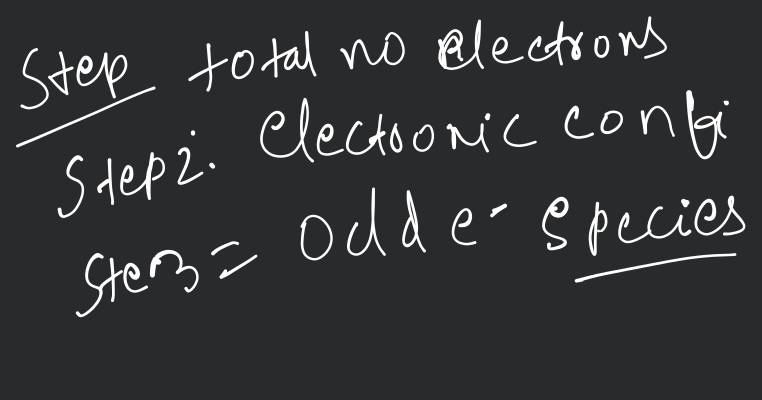 Step total no electrons
Step 2: Electronic confi
Ste3 = Odd e- species